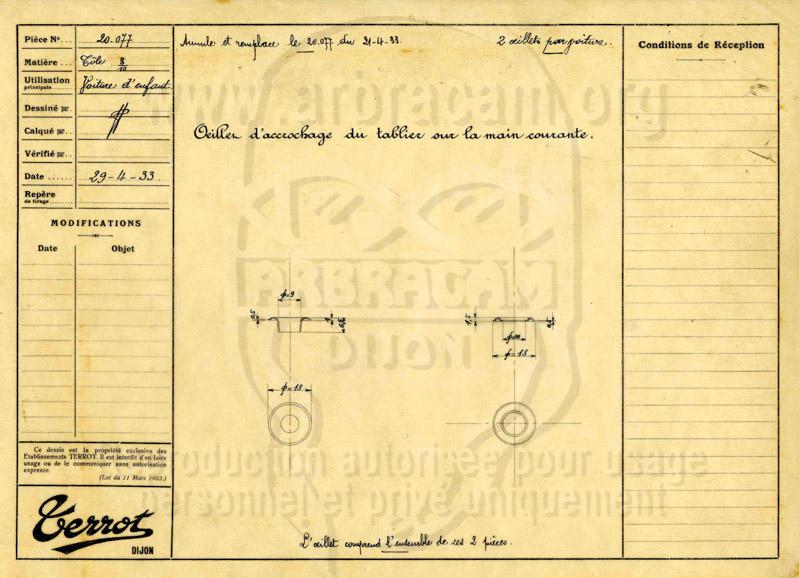 Pièce No... 20.077
Matière... Tôle 8/10
Utilisation principale........ Voiture d'enfant.
Dessiné par.
Calqué par..
Vérifié par..
Date ...... 29-4-33.
Repère de tirage.........
MODIFICATIONS
Date Objet
Ce dessin est la propriété exclusive des
Etablissements TERROT. Il est interdit d'en faire
usage ou de le communiquer sans autorisation
expresse.
(Loi du 11 Mars 1902.)
Terrot
DIJON
Annule et remplace le 20.077 du 21-4-33.
2 œillets par voiture.
Oeillet d'accrochage du tablier sur la main courante.
φ=9
0,5
1
φ=18
1,5
0,5
φ=18
L'œillet comprend l'ensemble de ces 2 pièces.
Conditions de Réception
www.arbracam.org
ARBRACAM
DIJON
Reproduction autorisée pour usage
personnel et privé uniquement